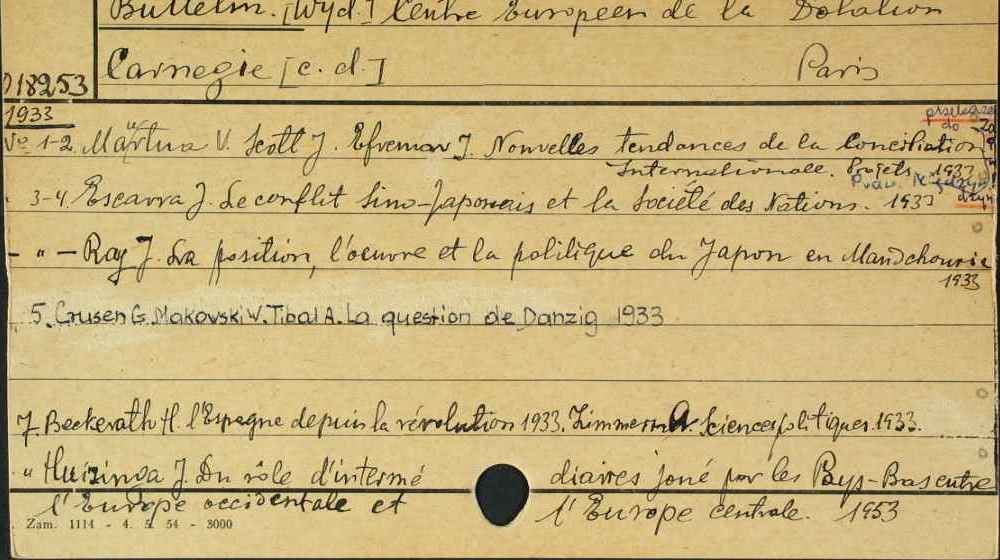 Bulletin. [Wyd.] Centre Européen de la Dotation
Carnegie [c. d.] Paris
018253
1933
No 1-2 V. Scott J. Efremov J. Nouvelles tendances de la conciliation
Internationale. Projets. 1933
3-4. Escarra J. Le conflit sino-japonais et la Société des Nations. 1933
- " - Ray J. La position, l'oeuvre et la politique du Japon en Mandchourie
1933
5. Crusen G. Makowski W. Tibal A. La question de Danzig 1933
7. Beckerath H. l'Espagne depuis la révolution 1933. Zimmern A. Sciences politiques 1933.
" Huizinga J. Du rôle d'intermé diaires joué par les Pays-Bas entre
l'Europe occidentale et l'Europe centrale. 1953
Zam. 1114 - 4. 5. 54 - 3000